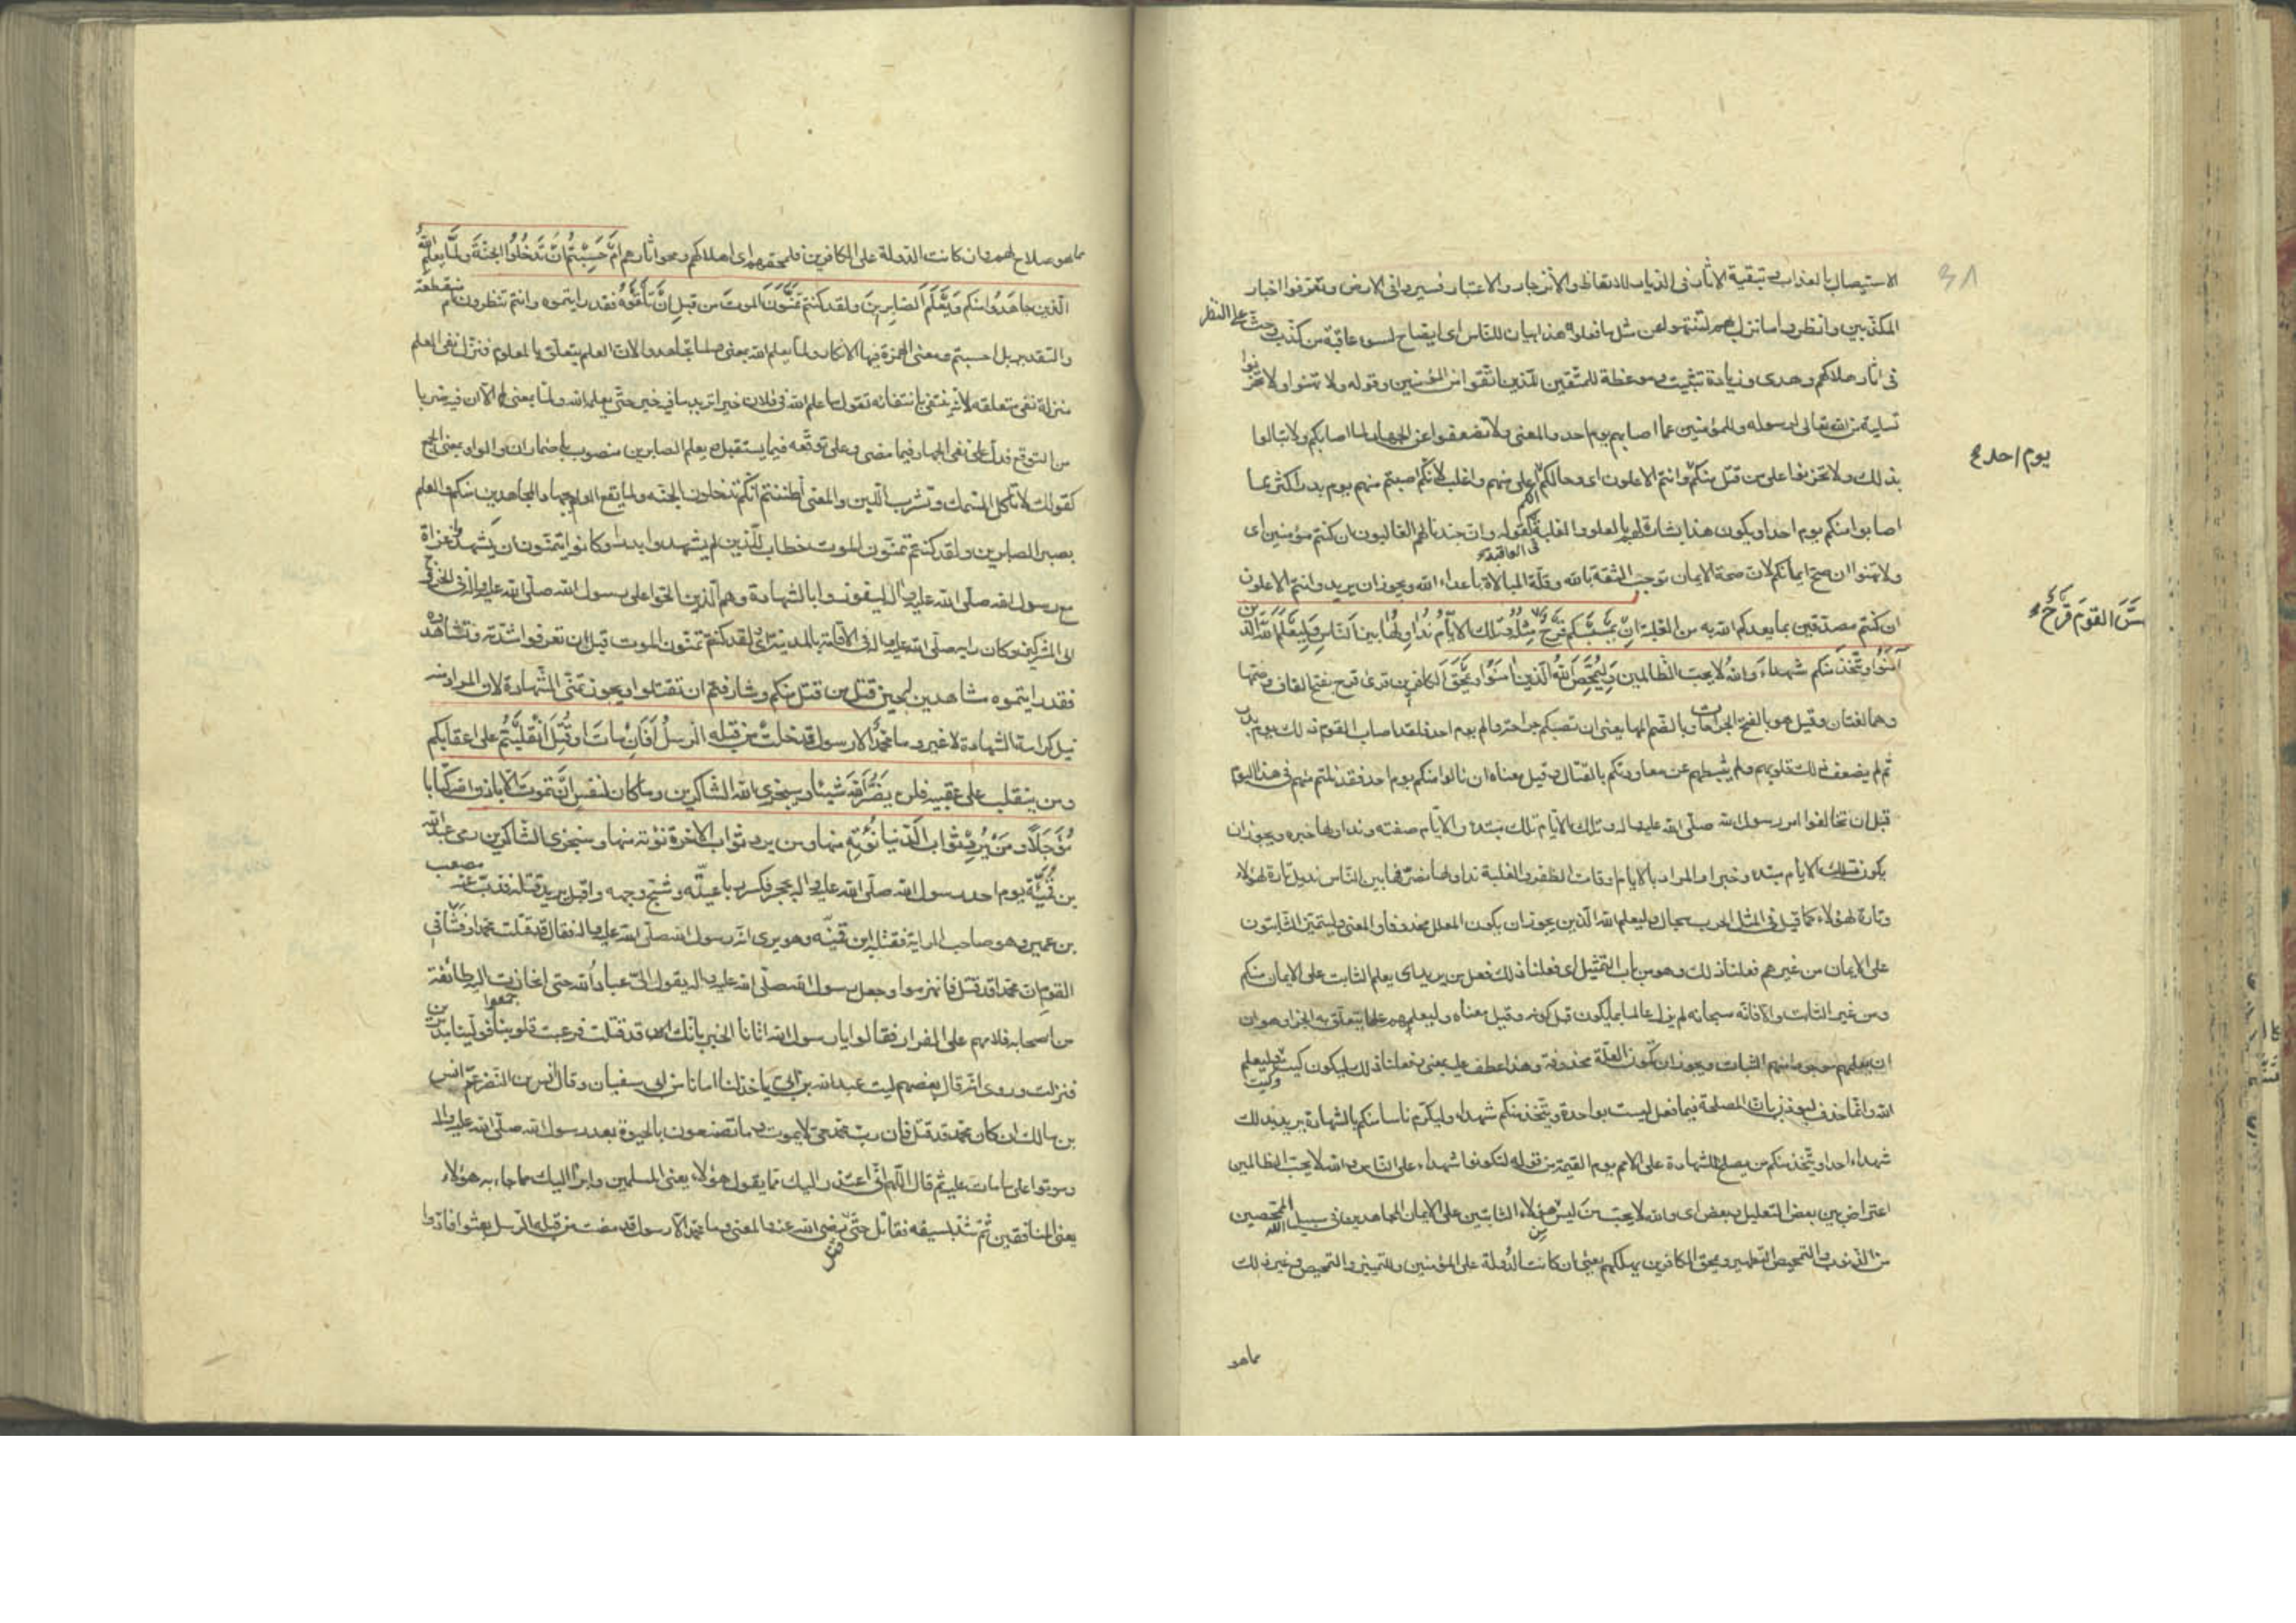 ٣٨
الاستيصال بالعذاب و تبقية الاثار فى الديار للاتعاظ و الانزجار و الاعتبار فسيروا فى الارض و تعرفوا اخبار
المكذبين و انظروا ما نزل بهم لتنتهوا عن مثل ما فعلوه هذا بيان للناس اى ايضاح لسوء عاقبة من كذب و حث على النظر
فى اثار هلاكهم و هدى و زيادة تثبيت و موعظة للمتقين للذين اتقوا من المؤمنين و قوله و لا تهنوا و لا تحزنوا
تسلية من الله تعالى لرسوله و للمؤمنين عما اصابهم يوم احد و المعنى و لا تضعفوا عن الجهاد لما اصابكم و لا تبالوا
يوم احد
بذلك و لا تحزنوا على من قتل منكم و انتم الاعلون اى و حالكم انكم اعلى منهم و اغلب لانكم اصبتم منهم يوم بدر اكثر مما
اصابوا منكم يوم احد او يكون هذا بشارة لهم بالعلو و الغلبة فى العاقبة كقوله و ان جندنا لهم الغالبون ان كنتم مؤمنين اى
و لا تهنوا ان صح ايمانكم لان صحة الايمان توجب الثقة بالله و قلة المبالاة باعداء الله و يجوز ان يريد و انتم الاعلون
ان كنتم مصدقين بما يعدكم الله به من الغلبة ان يمسسكم قرح فقد مثله و تلك الايام نداولها بين الناس و ليعلم الله الذين
مس القوم قرح
آمنوا و يتخذ منكم شهداء و الله لا يحب الظالمين و ليمحص الله الذين امنوا و يمحق الكافرين قرئ قرح بفتح القاف و ضمها
و هما لغتان و قيل هو بالفتح الجراحات و بالضم المها يعنى ان تصبكم جراحة و الم يوم احد فلقد اصاب القوم ذلك يوم بدر
ثم لم يضعف ذلك قلوبهم و لم يثبطهم عن معاودتكم بالقتال و قيل معناه ان نالوا منكم يوم احد فقد نلتم منهم فى هذا اليوم
قبل ان تخالفوا امر رسول الله صلى الله عليه و اله و تلك الايام تلك مبتدء و الايام صفته و نداولها خبره و يجوز ان
يكون تلك الايام مبتدء و خبرا و المراد بالايام اوقات الظفر و الغلبة نداولها نصرفها بين الناس نديل تارة لهؤلاء
و تارة لهؤلاء كما قيل فى المثل الحرب سجال و ليعلم الله الذين يجوز ان يكون المعلل محذوفا و المعنى و ليتميز الثابتون
على الايمان من غيرهم فعلنا ذلك و هو من باب التمثيل اى فعلنا ذلك فعل من يريد اى يعلم الثابت على الايمان منكم
و من غير الثابت و الا فانه سبحانه لم يزل عالما بما يكون قبل كونه و قيل معناه و ليعلمهم علما يتعلق به الجزا و هو ان
ان يعلمهم موجودا منهم الثبات و يجوز ان تكون العلة محذوفة و هذا عطف عليه بمعنى و فعلنا ذلك ليكون كيت و كيت و ليعلم
الله و انما حذف ليوذن بان المصلحة فيما فعل ليست بواحدة و يتخذ منكم شهداء و ليكرم ناسا منكم بالشهادة يريد بذلك
شهداء احد او يتخذ منكم من يصلح للشهادة على الامم يوم القيمة من قوله لتكونوا شهداء على الناس و الله لا يحب الظالمين
اعتراض بين بعض التعليل و بعض اى و الله لا يحب من ليس من هؤلاء الثابتين على الايمان المجاهدين فى سبيل الله الممحصين
من الذنوب و التمحيص التطهير و يمحق الكافرين يهلكهم يعنى ان كانت الدولة على المؤمنين و للتمييز و التمحيص و غير ذلك
مما هو
مما هو صلاح لهم و ان كانت الدولة على الكافرين فلمحقهم اى اهلاكهم و محو اثارهم ام حسبتم ان تدخلوا الجنة و لما يعلم الله
الذين جاهدوا منكم و يعلم الصابرين و لقد كنتم تمنون الموت من قبل ان تلقوه فقد رايتموه و انتم تنظرون ام منقطعة
و التقدير بل احسبتم و معنى الهمزة فيها الانكار و لما يعلم الله بمعنى و لما تجاهدوا لان العلم يتعلق بالمعلوم فنزل نفى العلم
منزلة نفى متعلقه لانه ينتفى بانتفائه تقول ما علم الله فى فلان خيرا تريد ما فيه خير حتى يعلمه الله و لما بمعنى لم الا ان فيه ضربا
من التوقع فدل على نفى الجهاد فيما مضى و على توقعه فيما يستقبل و يعلم الصابرين منصوب باضمار ان و الواو بمعنى الجمع
كقولك لا تاكل السمك و تشرب اللبن و المعنى اظننتم انكم تدخلون الجنة و لما يقع العلم بالمجاهدين منكم و العلم
بصبر الصابرين و لقد كنتم تمنون الموت خطاب للذين لم يشهدوا بدرا و كانوا يتمنون ان يشهدوا غزاة
مع رسول الله صلى الله عليه و اله ليفوزوا بالشهادة و هم الذين الحوا على رسول الله صلى الله عليه و اله فى الخروج
الى المشركين و كان رايه صلى الله عليه و اله فى الاقامة بالمدينة اى و لقد كنتم تمنون الموت قبل ان تعرفوا شدته و تشاهدوه
فقد رايتموه شاهدين لحين قتل من قتل منكم و شارفتم ان تقتلوا و يجوز تمنى الشهادة لان المراد منه
نيل كرامة الشهادة لا غير و ما محمد الا رسول قد خلت من قبله الرسل افان مات او قتل انقلبتم على اعقابكم
و من ينقلب على عقبيه فلن يضر الله شيئا و سيجزى الله الشاكرين و ما كان لنفس ان تموت الا باذن الله كتابا
مؤجلا و من يرد ثواب الدنيا نؤته منها و من يرد ثواب الاخرة نؤته منها و سنجزى الشاكرين رمى عبد الله
بن قميّة يوم احد رسول الله صلى الله عليه و اله بحجر فكسر رباعيته و شج وجهه و اقبل يريد قتله فذب عنه مصعب
بن عمير و هو صاحب الراية فقتله ابن قميّة و هو يرى انه رسول الله صلى الله عليه و اله فقال قد قتلت محمدا و فشا فى
القوم ان محمدا قد قتل فانهزموا و جعل رسول الله صلى الله عليه و اله يقول الىّ عباد الله حتى انحازت اليه طائفة
من اصحابه فلامهم على الفرار فقالوا يا رسول الله اتانا الخبر بانك قد قتلت فرعبت قلوبنا فولينا مدبرين
فنزلت و روى انه قال بعضهم ليت عبد الله بن ابى ياخذ لنا امانا من ابى سفيان و قال انس بن النضر عم انس
بن مالك ان كان محمد قد قتل فان رب محمد حى لا يموت و ما تصنعون بالحيوة بعد رسول الله صلى الله عليه و اله
و موتوا على ما مات عليه ثم قال اللهم انى اعتذر اليك مما يقول هؤلاء يعنى المسلمين و ابرا اليك مما جاء به هؤلاء
يعنى المنافقين ثم شد بسيفه فقاتل حتى قتل رضى الله عنه و المعنى و ما محمد الا رسول قد مضت من قبله الرسل بعثوا فادّوا